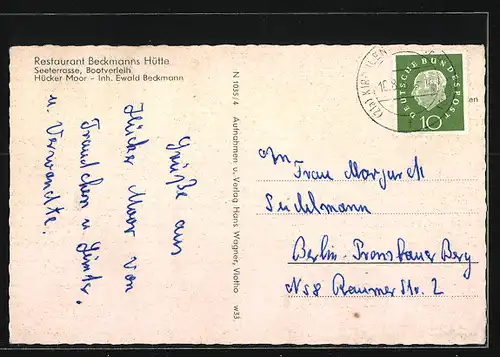 Restaurant Beckmanns Hütte
Seeterrasse, Bootverleih
Hücker Moor - Inh. Ewald Beckmann
Grüße aus
Hücker Moor von
Traudchen u. Günter.
u. Verwandte.
N 1035/4 Aufnahmen u. Verlag Hans Wagner, Vlotho w33
DEUTSCHE BUNDESPOST
10
(21a) KIRCHLEN
Frau Margarete
Seidelmann
Berlin-Prenzlauer Berg
N58 Raumer Str. 2